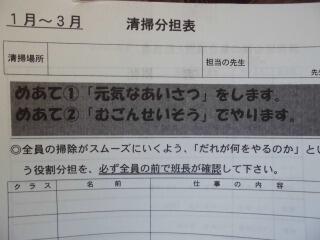 1月～3月 清掃分担表
清掃場所 担当の先生
めあて①「元気なあいさつ」をします。
めあて②「むごんせいそう」でやります。
◎全員の掃除がスムーズにいくよう、「だれが何をやるのか」とい
う役割分担を、必ず全員の前で班長が確認して下さい。
クラス 名前 仕事の内容